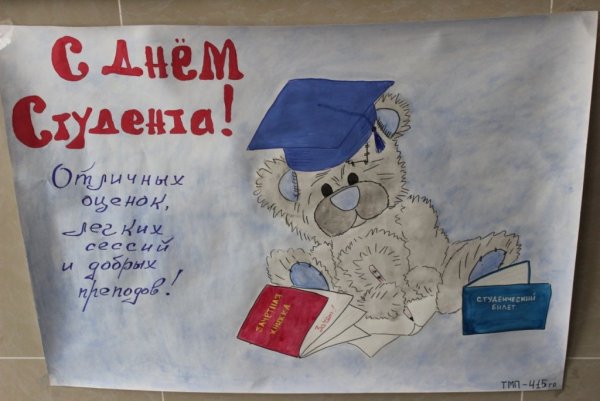 С ДНЁМ
Студента!
Отличных
оценок,
легких
сессий
и добрых
преподов!
ЗАЧЕТНАЯ
КНИЖКА
Зачет!
СТУДЕНЧЕСКИЙ
БИЛЕТ
ТМП-415го